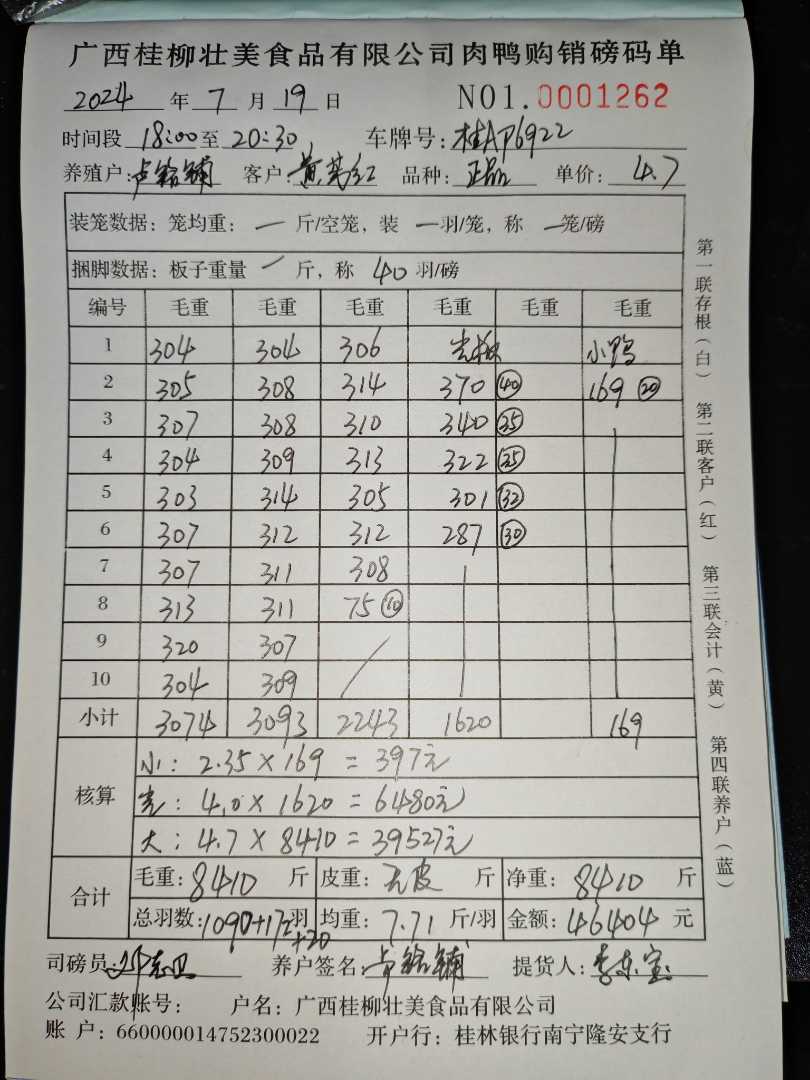 广西桂柳壮美食品有限公司肉鸭购销磅码单
2024 年 7 月 19 日 NO1.0001262
时间段 18:00 至 20:30 车牌号: 桂AP6922
养殖户: 卢铭辅 客户: 黄 红 品种: 正品 单价: 4.7
装笼数据: 笼均重: 一 斤/空笼, 装 一 羽/笼, 称 一 笼/磅
捆脚数据: 板子重量 一 斤, 称 40 羽/磅
编号 毛重 毛重 毛重 毛重 毛重 毛重
1 304 304 306 小鸭
2 305 308 314 370 ㊵ 169 ⑳
3 307 308 310 340 ㉟
4 304 309 313 322 ㉟
5 303 314 305 301
6 307 312 312 287 ㉚
7 307 311 308
8 313 311 75 ⑩
9 320 307
10 304 309
小计 3074 3093 2243 1620 169
核算
小: 2.35×169=397元
光: 4.0×1620=6480元
大: 4.7×8410=39527元
合计
毛重: 8410 斤 皮重: 无皮 斤 净重: 8410 斤
总羽数: 1090+172羽 +20 均重: 7.71 斤/羽 金额: 46404 元
司磅员: 养户签名: 卢铭辅 提货人: 李东宝
公司汇款账号: 户名: 广西桂柳壮美食品有限公司
账 户: 660000014752300022 开户行: 桂林银行南宁隆安支行
第一联存根(白) 第二联客户(红) 第三联会计(黄) 第四联养户(蓝)